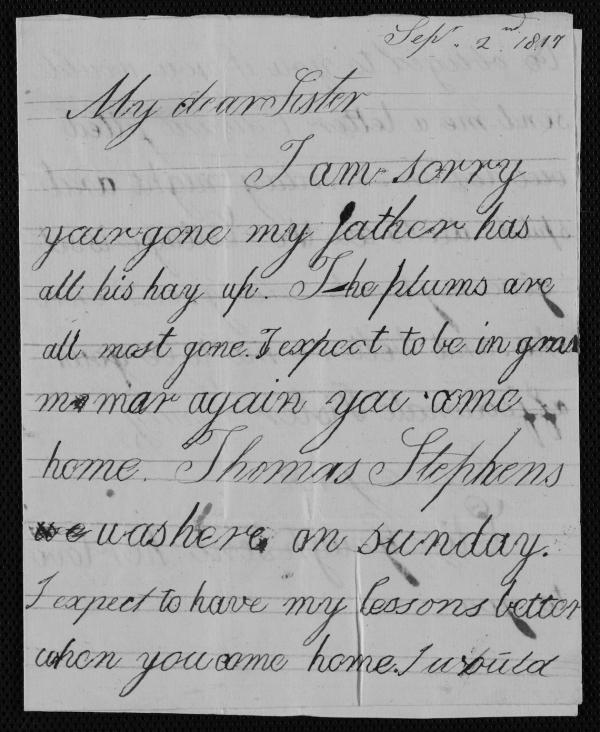 Sep. 2nd 1817
My dear Sister
I am sorry
your gone my father has
all his hay up. The plums are
all most gone. I expect to be in gram
mar again you come
home. Thomas Stephens
was here on sunday.
I expect to have my lessons better
when you come home. I would